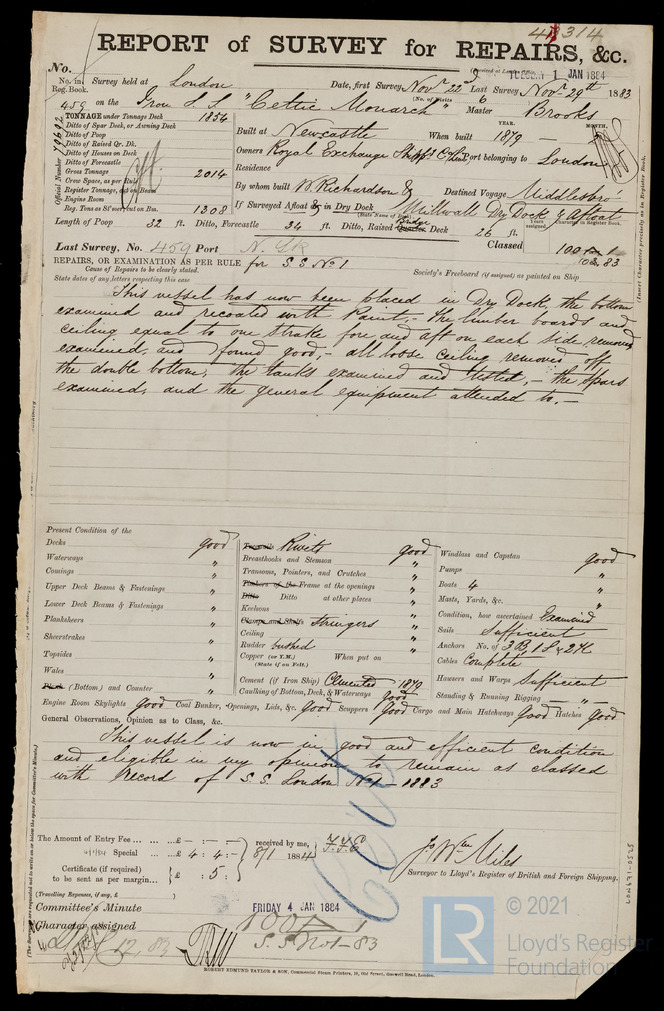 48314
REPORT of SURVEY for REPAIRS, &c.
No.
TUESDAY 1 JAN 1884
No. in Reg. Book. Survey held at London Date, first Survey Novr 22 Last Survey Novr 29th 1883
459 on the Iron S.S. "Celtic Monarch" (No. of Visits 6) Master Brooks
TONNAGE under Tonnage Deck 1854
Ditto of Spar Deck, or Awning Deck
Ditto of Poop
Ditto of Raised Qr. Dk.
Ditto of Houses on Deck
Ditto of Forecastle
Gross Tonnage 2014
Crew Space, as per Rule
Register Tonnage, as on Beam
Engine Room
Reg. Tons as 1308
Official Number
Built at Newcastle When built YEAR. 1879 MONTH.
Owners Royal Exchange Shippg Coy Lim Port belonging to London
Residence
By whom built W. Richardson & Destined Voyage Middlesbro'
If Surveyed Afloat & in Dry Dock Millwall Dry Dock & afloat
(State Name of Dock)
Years assigned Character in Register Book.
Length of Poop 32 ft. Ditto, Forecastle 34 ft. Ditto, Raised Bridge Deck 26 ft.
Last Survey, No. 459 Port Classed 100 A 1
REPAIRS, OR EXAMINATION AS PER RULE for S.S. No 1
Cause of Repairs to be clearly stated.
State dates of any letters respecting this case
Society's Freeboard (if assigned) as painted on Ship
This vessel has now been placed in Dry Dock, the bottom
examined and recoated with Paint,- The limber boards and
ceiling equal to one strake fore and aft on each side removed
examined, and found good,- all loose ceiling removed off
the double bottom, the tanks examined and tested,- the Spars
examined, and the general equipment attended to.-
Present Condition of the
Decks good
Waterways "
Comings "
Upper Deck Beams & Fastenings "
Lower Deck Beams & Fastenings "
Planksheers "
Sheerstrakes "
Topsides "
Wales "
Plank (Bottom) and Counter "
Treenails Rivets good
Breasthooks and Stemson "
Transoms, Pointers, and Crutches "
Timbers of the Frame at the openings "
Ditto Ditto at other places "
Keelsons "
Clamps and Shelfs Stringers "
Ceiling "
Rudder bushed "
Copper (or Y.M.) When put on
(State if on Felt.)
Cement (if Iron Ship) Cemented 1879
Caulking of Bottom, Deck, & Waterways good
Windlass and Capstan good
Pumps "
Boats 4 "
Masts, Yards, &c. "
Condition, how ascertained Examined
Sails Sufficient
Anchors No. of 3 B, 1 S & 2 K
Cables Complete
Hawsers and Warps Sufficient
Standing & Running Rigging "
Engine Room Skylights good Coal Bunker, Openings, Lids, &c. good Scuppers good Cargo and Main Hatchways good Hatches good
General Observations, Opinion as to Class, &c.
This vessel is now in good and efficient condition
and eligible in my opinion to remain as classed
with Record of S.S. London No 1 - 1883
The Amount of Entry Fee ... £ - : - : -
Special ... £ 4 : 4 : -
Certificate (if required) to be sent as per margin... } £ : 5 :
(Travelling Expenses, if any, £ )
received by me,
8/1 1884
Jno Wm Miles
Surveyor to Lloyd's Register of British and Foreign Shipping.
Committee's Minute FRIDAY 4 JAN 1884
Character assigned 100 A 1
S.S. No 1-83
12.83
ROBERT EDMUND TAYLOR & SON, Commercial Steam Printers, 19, Old Street, Goswell Road, London.
LON671-0525
LR
© 2021
Lloyd's Register
Foundation